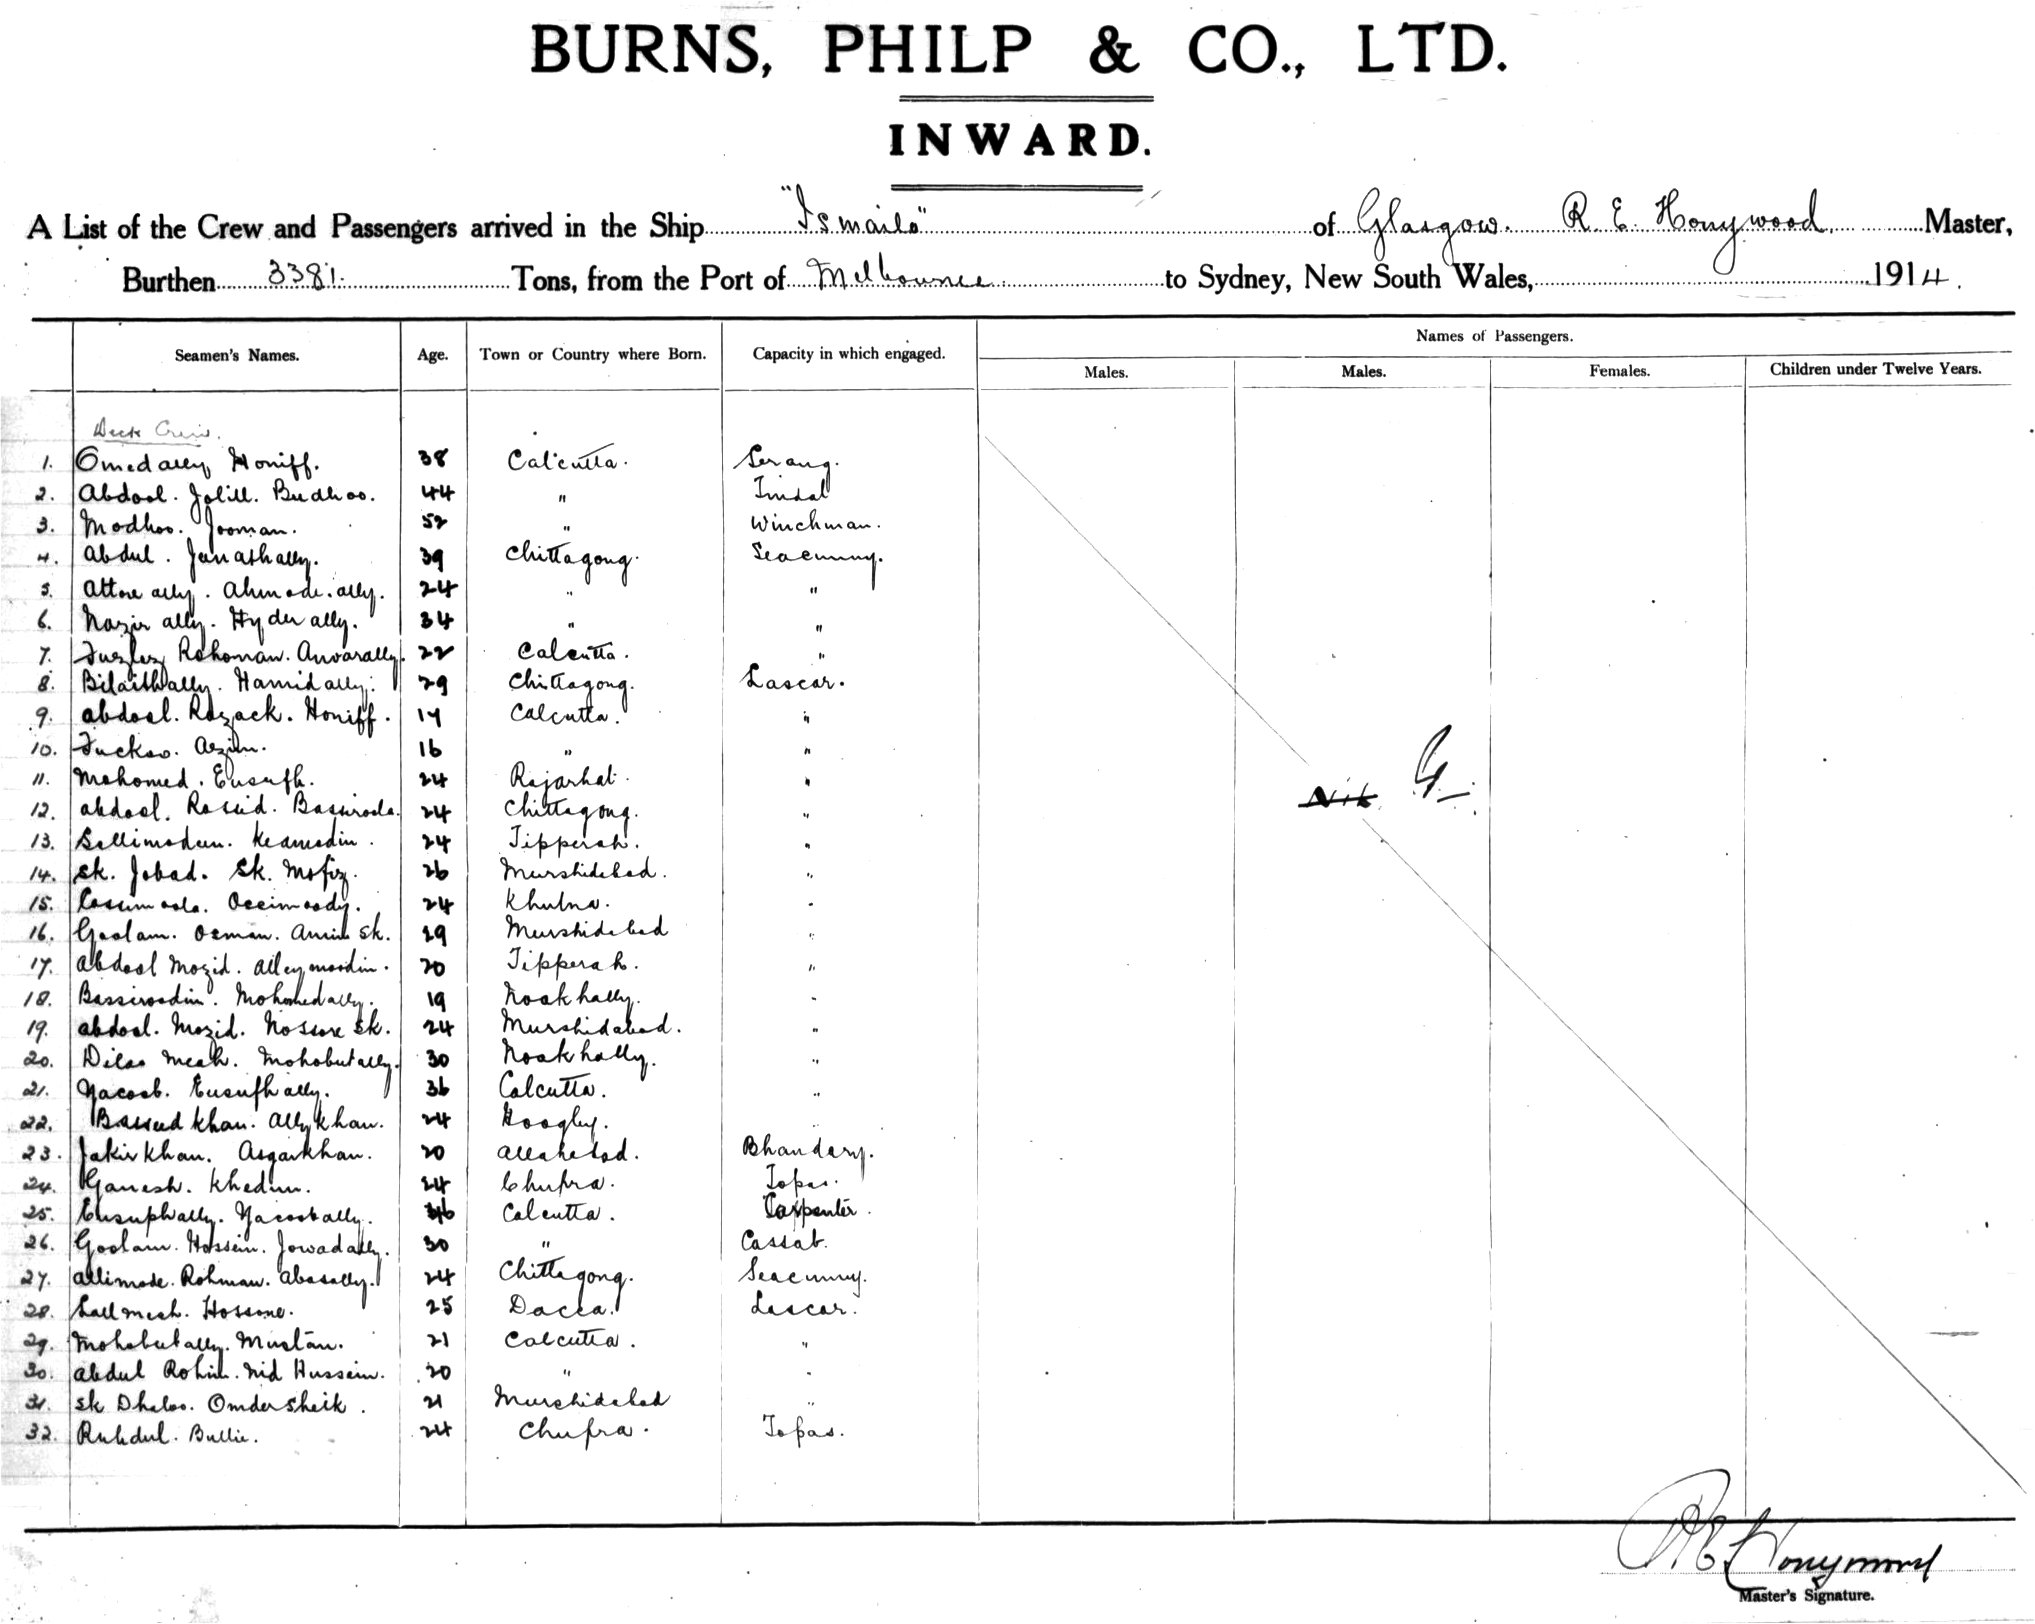 BURNS, PHILP & CO., LTD.
INWARD.
A List of the Crew and Passengers arrived in the Ship "Ismaila" of Glasgow. R. E. Honywood. Master,
Burthen 3381. Tons, from the Port of Melbourne to Sydney, New South Wales, 1914.
Names of Passengers.
Seamen's Names. Age. Town or Country where Born. Capacity in which engaged. Males. Males. Females. Children under Twelve Years.
Deck Crew.
1. Omedally Honiff. 38 Calcutta. Serang.
2. Abdool. Jolill. Budhoo. 44 " Tindal
3. Modhoo. Jooman. 52 " Winchman.
4. Abdul. 39 Chittagong. Seacunny.
5. Ahmode. ally. 24 " "
6. Nazir ally. Hyder ally. 34 " "
7. Rohoman. Anvarally. 22 Calcutta. "
8. Bilaithally. Hamid ally. 29 Chittagong. Lascar.
9. Abdool. Razack. Honiff. 17 Calcutta. "
10. Fuckoo. Azim. 16 " "
11. Mohomed. Eusufh. 24 Rajarhat. "
12. Abdool. Rosid. 24 Chittagong. "
13. 24 Tipperah. "
14. Sk. Jobad. Sk. Mofiz. 26 Murshidabad. "
15. 24 Khulna. "
16. Goolam. Osman. Sk. 29 Murshidabad "
17. Abdool Mozid. Alleymoodin. 20 Tipperah. "
18. Bassiroodin. Mohomedally. 19 Noakhally. "
19. Abdool. Mozid. Nossore Sk. 24 Murshidabad. "
20. Meah. Mohobutally. 30 Noakhally. "
21. Yacoob. Eusufhally. 36 Calcutta. "
22. Khan. Ally Khan. 24 Hoogly. "
23. Jakir Khan. Asgarkhan. 20 Allahabad. Bhandary.
24. Ganesh. Khedun. 24 Chupra. Topas.
25. Eusuphally. Yacoobally. 36 Calcutta. Carpenter.
26. Goolam. Hossein. Jowadally. 30 " Cassab.
27. Allimode. Rohman. Abasally. 24 Chittagong. Seacunny.
28. Lall Meah. Hossone. 25 Dacca. Lascar.
29. Mohobutally. Mustan. 21 Calcutta. "
30. Abdul Rohim. Md Hussein. 20 " "
31. Sk Dhaloo. Omder Sheik. 21 Murshidabad "
32. Ruhdul. Bullie. 24 Chupra. Topas.
Nil
R E Honywood
Master's Signature.